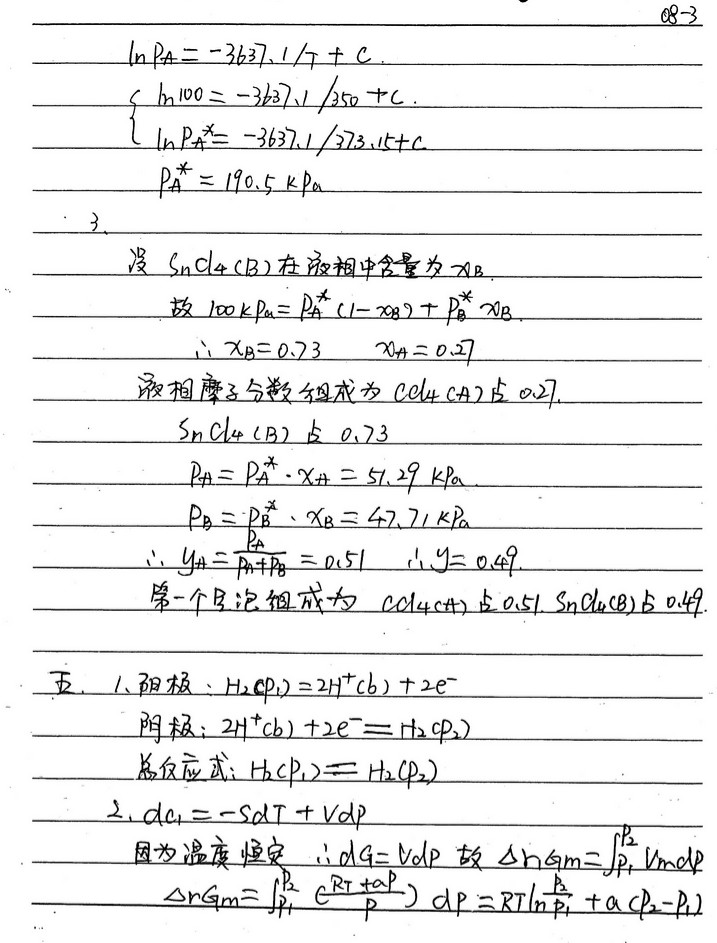 08-3
lnPA = -3637.1/T + C.
ln100 = -3637.1/350 + C.
lnPA* = -3637.1/373.15+C
PA* = 190.5 kPa
3.
设 SnCl4(B)在液相中含量为 xB.
故 100kPa = PA*(1-xB) + PB* xB.
∴ xB=0.73 xA=0.27
液相摩子分数组成为 CCl4(A)占 0.27.
SnCl4(B)占 0.73
PA = PA*·xA = 51.29 kPa.
PB = PB*·xB = 47.71 kPa
∴ yA = PA/(PA+PB) = 0.51 ∴ y = 0.49.
第一个气泡组成为 CCl4(A)占0.51 SnCl4(B)占0.49.
五. 1、阳极: H2(P1)=2H+(b)+2e-
阴极: 2H+(b)+2e- = H2(P2)
总反应式: H2(P1) = H2(P2)
2. dG = -SdT + VdP
因为温度恒定 ∴dG=VdP 故 ΔrGm=∫P1P2 VmdP
ΔrGm=∫P1P2 (RT+aP/P) dP = RTln P2/P1 + a(P2-P1)